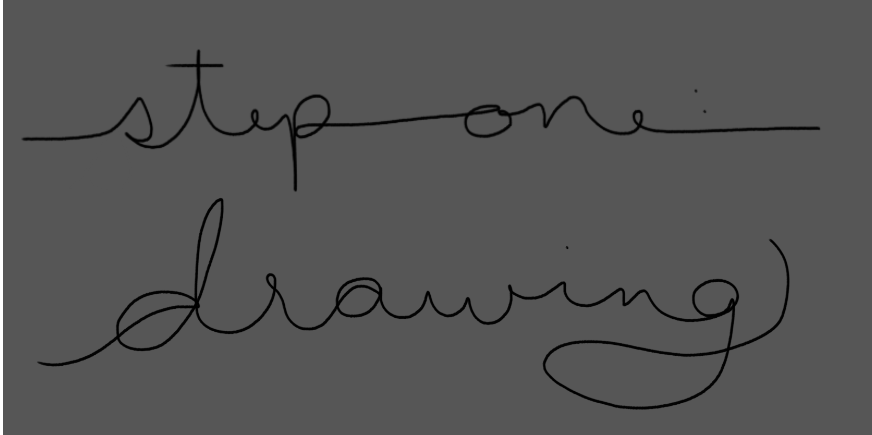 step one:
drawing